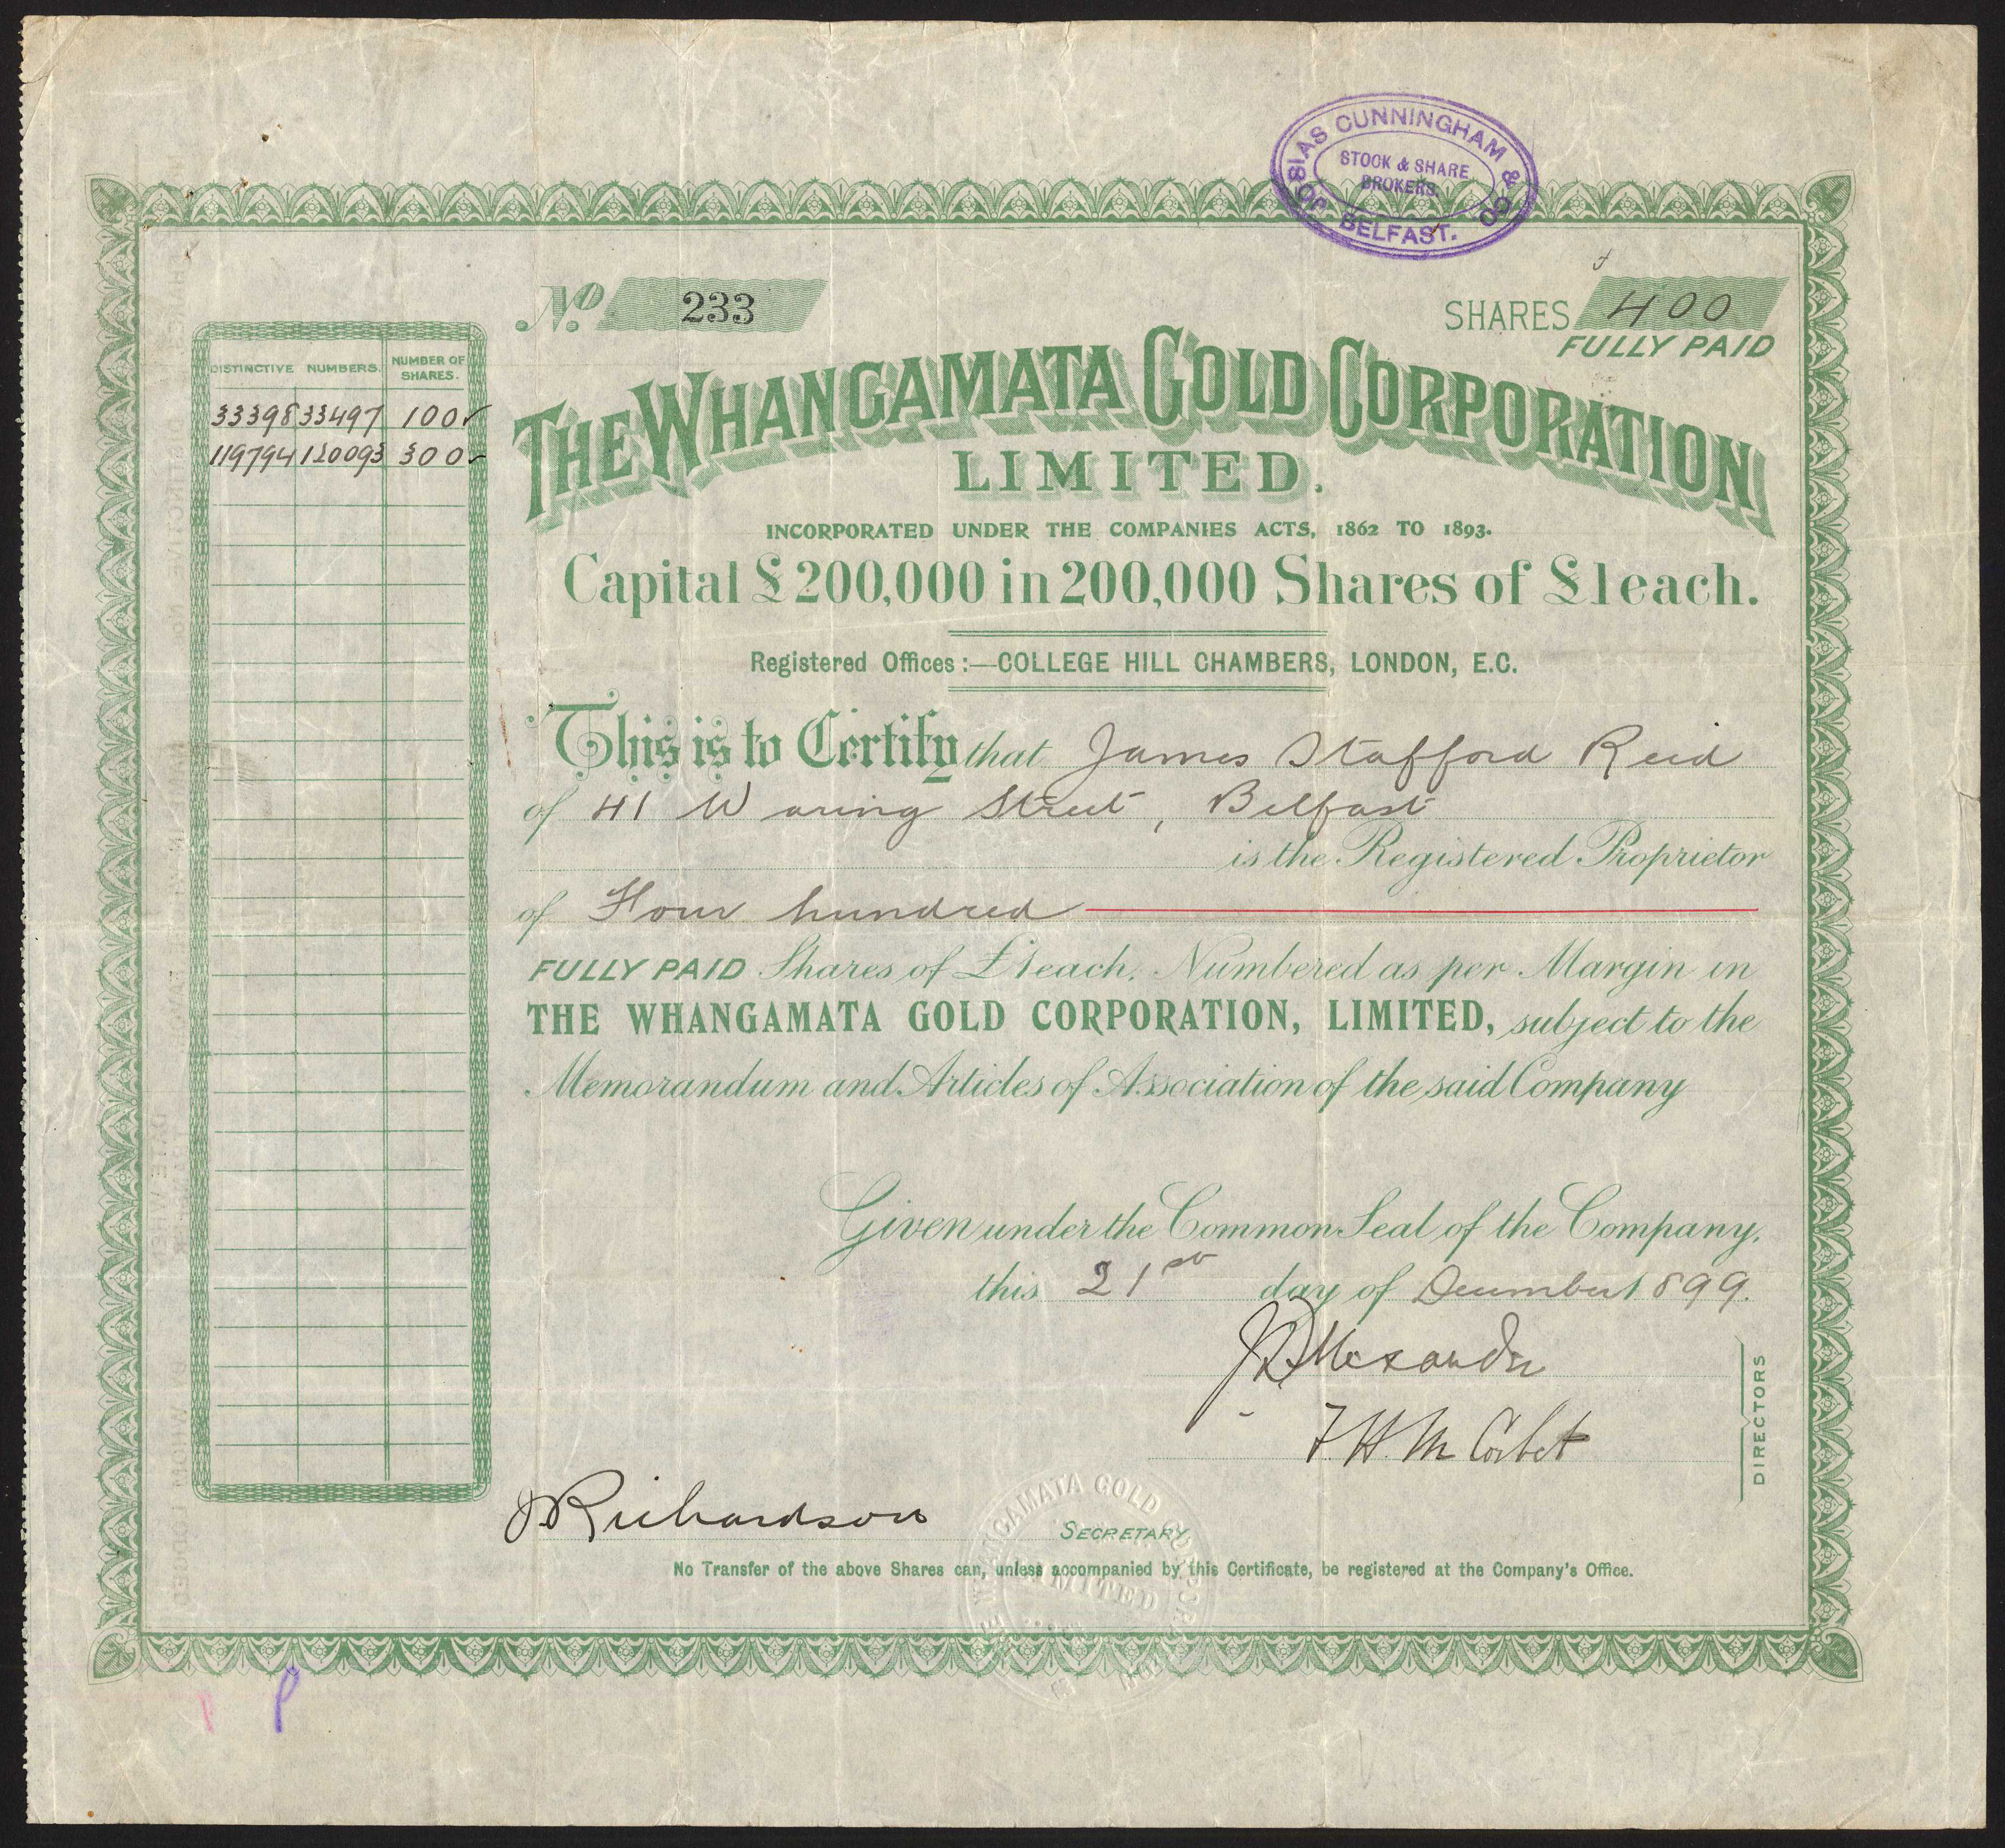 JOSIAS CUNNINGHAM & CO
STOCK & SHARE
BROKERS.
BELFAST.
No. 233
SHARES 400
FULLY PAID
DISTINCTIVE NUMBERS. NUMBER OF SHARES.
33398 33497 100
119794 120093 300
THE WHANGAMATA GOLD CORPORATION
LIMITED.
INCORPORATED UNDER THE COMPANIES ACTS, 1862 TO 1893.
Capital £200,000 in 200,000 Shares of £1 each.
Registered Offices:—COLLEGE HILL CHAMBERS, LONDON, E.C.
This is to Certify that James Stafford Reid
of 41 Waring Street, Belfast
is the Registered Proprietor
of Four hundred
FULLY PAID Shares of £1 each. Numbered as per Margin in
THE WHANGAMATA GOLD CORPORATION, LIMITED, subject to the
Memorandum and Articles of Association of the said Company
Given under the Common Seal of the Company,
this 21st day of December 1899.
Alexander
F. H. M Corbet
DIRECTORS
Richardson
SECRETARY.
No Transfer of the above Shares can, unless accompanied by this Certificate, be registered at the Company's Office.
THE WHANGAMATA GOLD CORPORATION
LIMITED